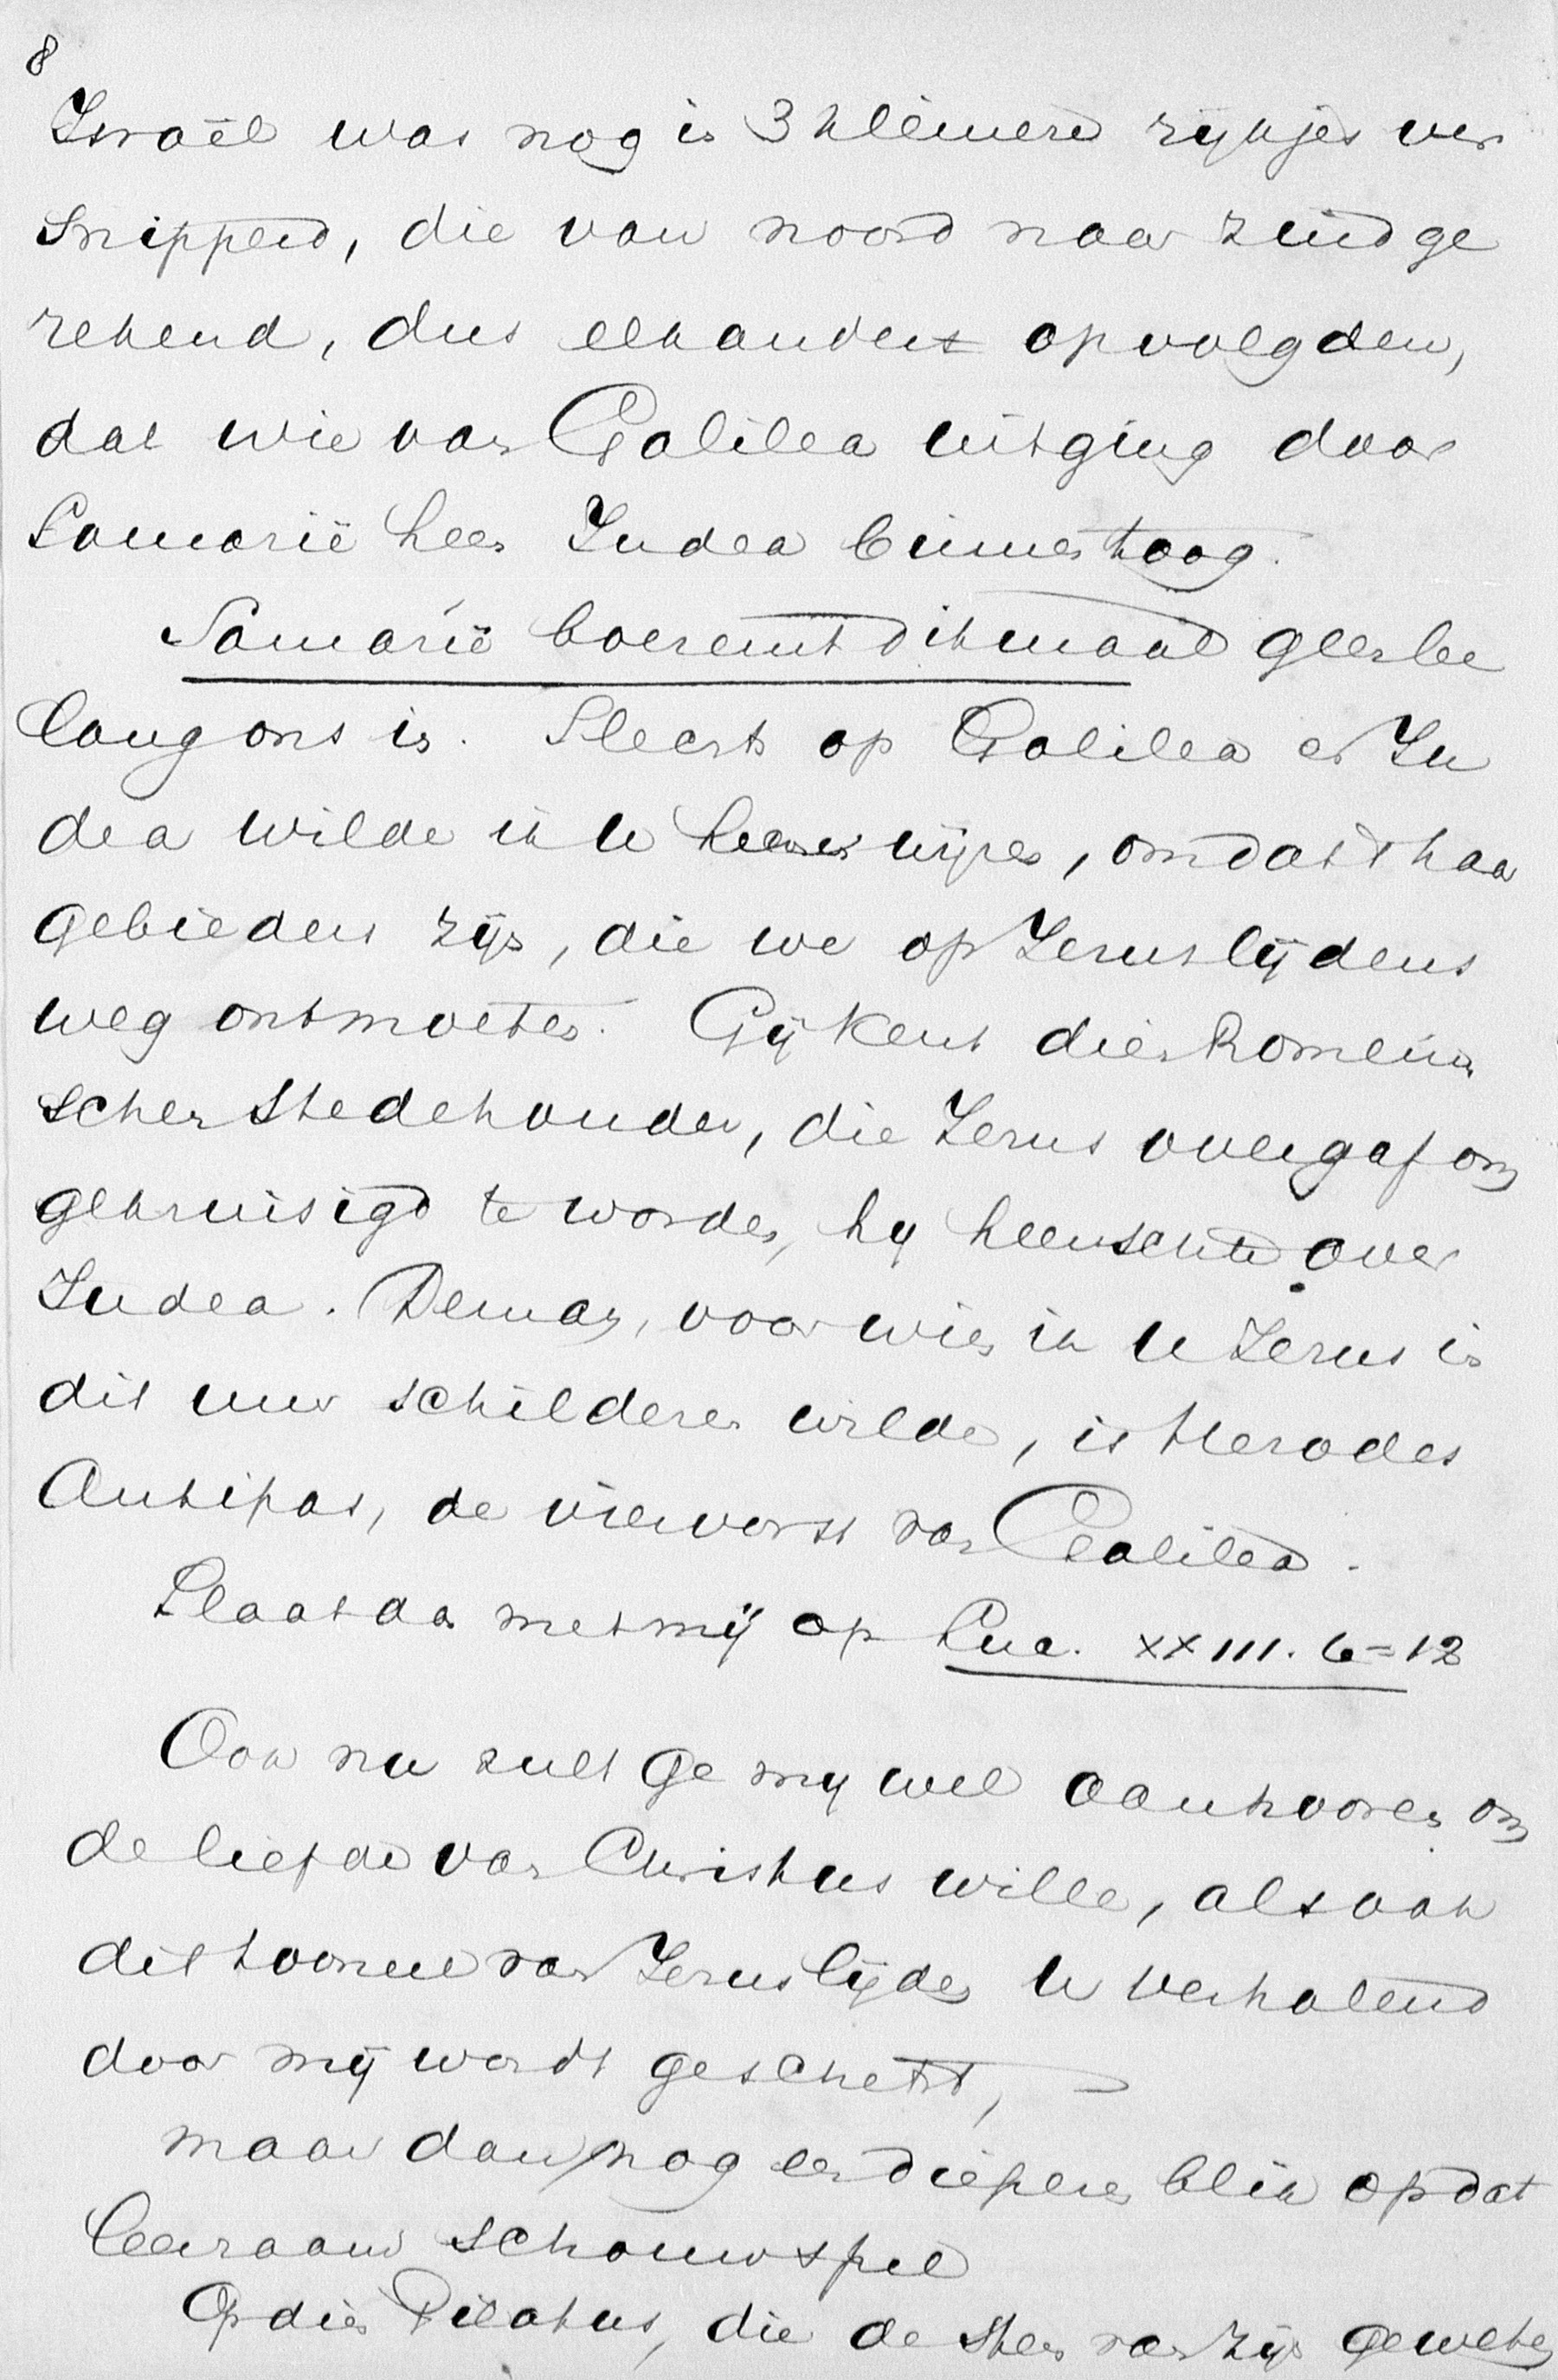 8
Israël was nog in 3 kleinere rijkjes ver
snipperd, die van noord naar zuid ge
rekend, dus elkander opvolgden,
dat wie van Galilea uitging door
Samarië heen Judea binnentoog.
Samarië boezemt ditmaal geen be
lang ons in. Slechts op Galilea en Ju
dea wilde ik U heenwijzen, omdat 't haar
gebieden zijn, die we op Jezus lijdens
weg ontmoeten. Gij kent dien Romein
schen Stedehouder, die Jezus overgaf om
gekruisigd te worden, hij heerschte over
Judea. De man, voor wien ik U Jezus in
dit uur schilderen wilde, is Herodes
Antipas, de viervorst van Galilea.
Slaat dan met mij op Luc. XXIII. 6=12
Ook nu zult ge mij wel aanhooren om
de liefde van Christus wille, als ook
dit tooneel van Jezus lijden U verhalend
door mij wordt geschetst,
maar dan nog een dieperen blik op dat
leerzaam schouwspel
Op dien Pilatus, die de stem van zijn geweten